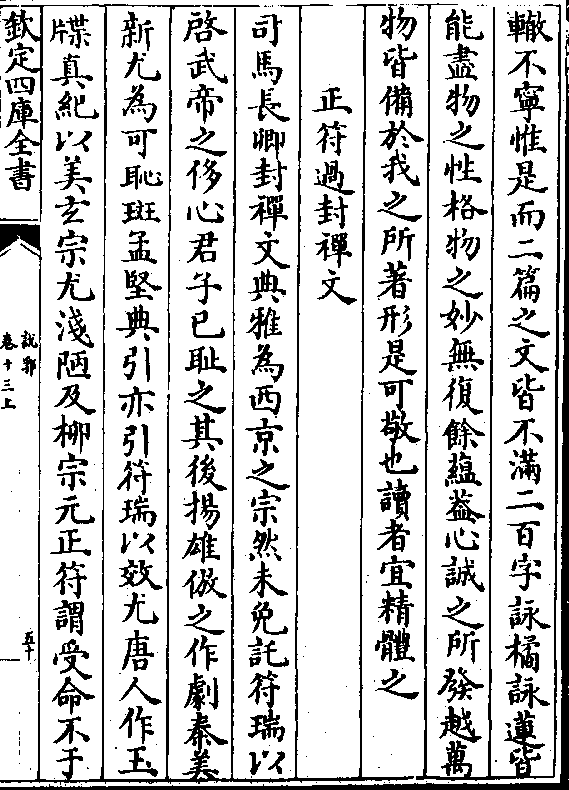 轍不寧惟是而二篇之文皆不滿二百字詠橘詠蓮皆
能盡物之性格物之妙無復餘蘊葢心誠之所發越萬
物皆備於我之所著形是可敬也讀者宜精體之
正符過封禪文
司馬長卿封禪文典雅為西京之宗然未免託符瑞以
啓武帝之侈心君子已耻之其後揚雄倣之作劇秦美
新尤為可恥班孟堅典引亦引符瑞以效尤唐人作玉
牒真紀以美玄宗尤淺陋及柳宗元正符謂受命不于
欽定四庫全書
說郛
卷十三上
五十